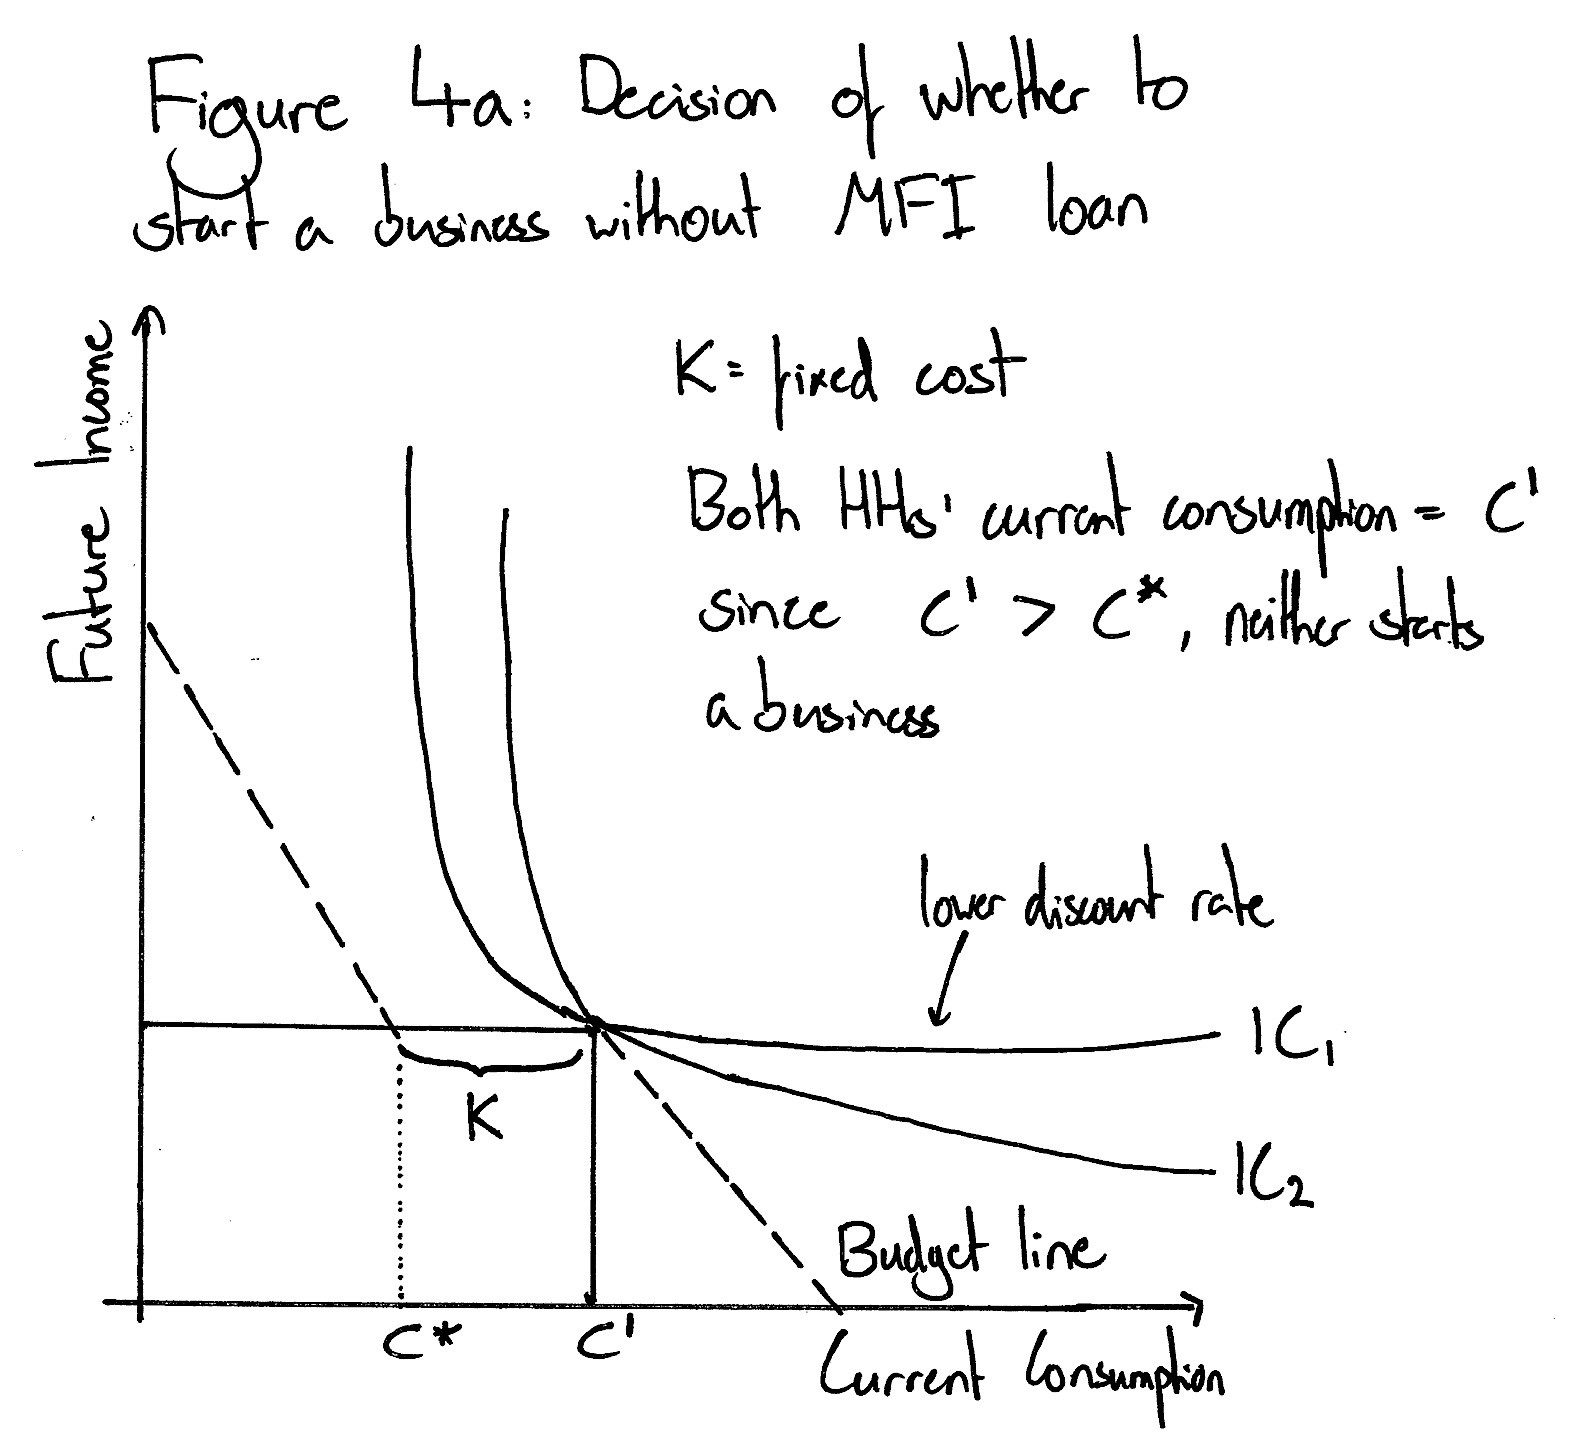 Figure 4a: Decision of whether to
start a business without MFI loan
Future Income
K = fixed cost
Both HHs' current consumption = C'
since C' > C*, neither starts
a business
lower discount rate
IC1
K
IC2
Budget line
C*
C'
Current Consumption